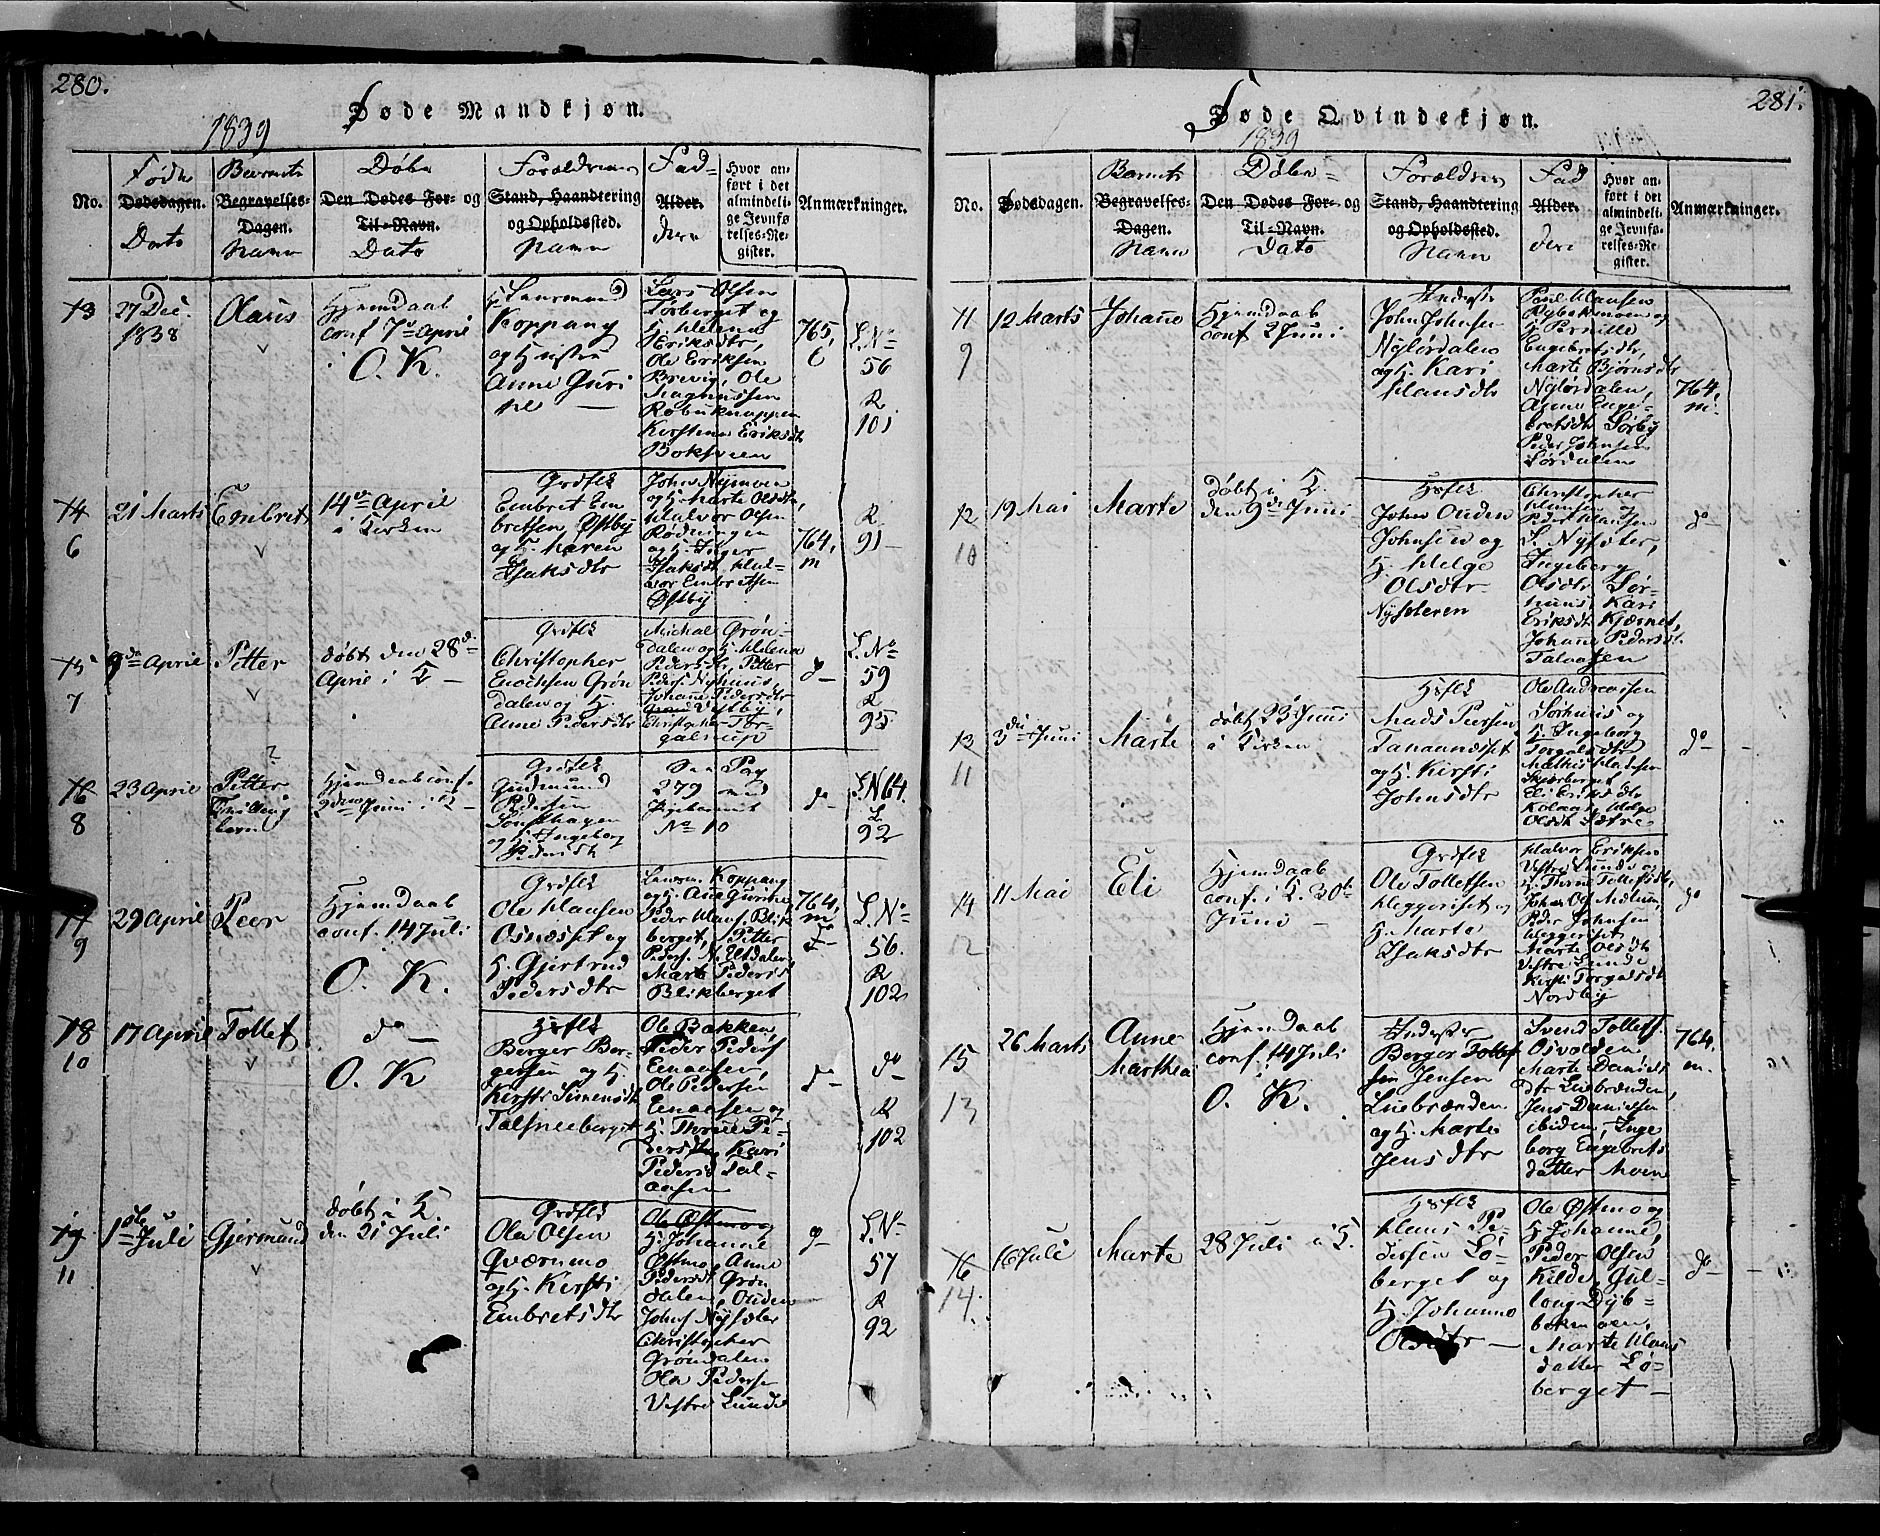 280.
Døde Mandkjøn.
1839
No.
Fødte
Dødsdagen.
Dato
Barnets
Begravelses-
Dagen.
Navn
Døbe
Den Dødes For- og
Til-Navn.
Dato
Forældrenes
Stand, Haandtering
og Opholdssted.
Navn
Fad-
Alder.
dere
Hvor an-
ført i det
almindeli-
ge Jevnfø
relses-Re-
gister.
Anmærkninger.
13
27 Dec.
1838
Olaus
Hjemdøab
conf 7de April
O. K.
Lensmand
Koppang
og Hustru
Anne Guri
ne —
Lars Olsen
Torberget og
H. Helena
Eriksdtr,
Ole Eriksen
Brevig, Ole
Magnussen
Kirstine Eriksdtr
765,
L. No
56
R
101
14
6
21 Marts
Embret
14de April
i Kirken
Grdflk
Embret Em
bretsen Østby
og H. Maren
Isaksdtr
John Nymoen
og H. Marte Olsdtr,
Halvor Olsen
Rødningen
og H. Inger
Isaksdtr, Hal-
vor Embretsen
Østby
764,
m
R
91 —
15
7
9de April
Petter
døbt den 28d.
April i K —
Grdflk
Christopher
Enochsen Grøn
dalen og H.
Anne Pedersdtr
Michal Grøn-
dalen og H. Helena
Pedersdtr, Petter
Peders. Nyhuus,
Johanne Pedersdtr
Christopher Tor-
galstup
d —
L. No
59
R
95
16
8
23 April
?
Petter
Tvilling
Hjemdøab conf.
2den Juni i K —
Grdflk
Gudmund
Pedersen
Sønsthagen
og H. Ingeborg
Pedersdtr
See Pag
279 med
Pigebarnet
No 10
do
L. N 64.
R
92
17
9
29 April
Peer
Hjemdøab
conf. 14 Juli
O. K.
Grdflk
Ole Hansen
Osnæsset og
H. Gjertrud
Pedersdtr
Lensm. Koppang
og H. Ane Gurine
Peder Hans. Blik
berget, Petter
Peders. N. Eltdalen
Marte Peders
Blikberget
764,
m
L. No
56.
R
102
18
10
17 April
Tollef
do —
O. K
Hsflk
Berger Ber-
gersen og H.
Kirsti Simensdtr
Talsneeberget
Ole Bakken,
Peder Peders
Enaasen,
Ole Pedersen
Enaasen og
H. Thrine Pe-
dersdtr, Kari
Peders Tal-
aasen
do —
do
R
102
19
11
1ste Juli
Gjermund
døbt i K.
den 21 Juli
Grdflk
Ole Olsen
Qværnmo
og H. Kirsti
Embretsdtr
Ole Østmo og
H. Johanne
Østmo, Anne
Pedersdt. Grøn
dalen, Ouden
Johns Nysæter
Christopher
Grøndalen
Ole Peders
Vestre Lunde
d —
L. No
57
R
92
281.
Døde Qvindekjøn.
1839
No.
Dødsdagen.
Barnets
Begravelses-
Dagen.
Navn
Døbe-
Den Dødes For- og
Til-Navn.
Dato
Forældrenes
Stand, Haandtering
og Opholdssted.
Navn
Fad
Alder.
dere
Hvor an-
ført i det
almindeli-
ge Jevnfø-
relses-Re-
gister.
Anmærkninger.
11
9
12 Marts
Johanne
Hjemdøab
conf 2 Juni
Inderste
John Johnsen
Nylørdalen
og H. Kari
Hansdtr
Poul Hansen
Dybekmoen og
H. Pernille
Engebretsdtr,
Marte Bjørnsdtr
Nylørdalen,
Anne Enge-
bretsdtr Sørby
Peder Johnsen
Lørdalen
764,
m.
12
10
19 Mai
Marte
døbt i K.
den 9de Juni
Hsflk
Johan Ouden
Johnsen og
H. Helge
Olsdtr
Nysæteren
Christopher
Hansen og
Peder Hansen
S. Nysæter,
Ingeborg
Olsdtr Sør-
huus, Kari
Eriksdtr Kjærnet,
Johanne Pedersdtr
Talaasen
do —
13
11
3die Juni
Marte
døbt 23 Juni
i Kirken
Hsflk
Mads Persen
Tanannæsset
og H. Kirsti
Johnsdtr
Ole Andreassen
Sørhuus og
H. Ingeborg
Torgalsdtr
Mathis Madsen
Skjærberget
Eli Eriksdtr
Kolaas, Helge
Olsdtr Sætre
do —
14
12
11 Mai
Eli
Hjemdøab
conf. i K. 30te
Juni —
Grdflk
Ole Tollefsen
Heggeriset og
H. Marte
Isaksdtr
Halvor Eriksen
Vestre Lunde og
H. Thrine Tollefsdtr,
Peder Johnsen
Heggeriset
Marte Olsdtr
Vestre Lunde
Kirsti Torgalsdtr
Nordby
do
15
13
26 Marts
Anne
Marthea
Hjemdøab
conf. 14 Juli
O. K.
Inderster
Berger Tollef
sen Jensen
Luebrænden
og H. Marte
Jensdtr
Svend Tollefs.
Osvolden
Marte Daniels
dtr Luebrænden,
Jens Danielsen
ibiden, Inge
borg Engebrets
datter Moen
764,
m.
16
14.
16 Juli
Marte
28 Juli i K.
Hsflk
Hans Pe
dersen Lø-
berget og
H. Johanne
Olsdtr —
Ole Østmo og
H. Johanne,
Peder Olsen
Kilde, Gul-
long Dyb-
bekmoen,
Marte Hans
datter Lø-
berget —
do —